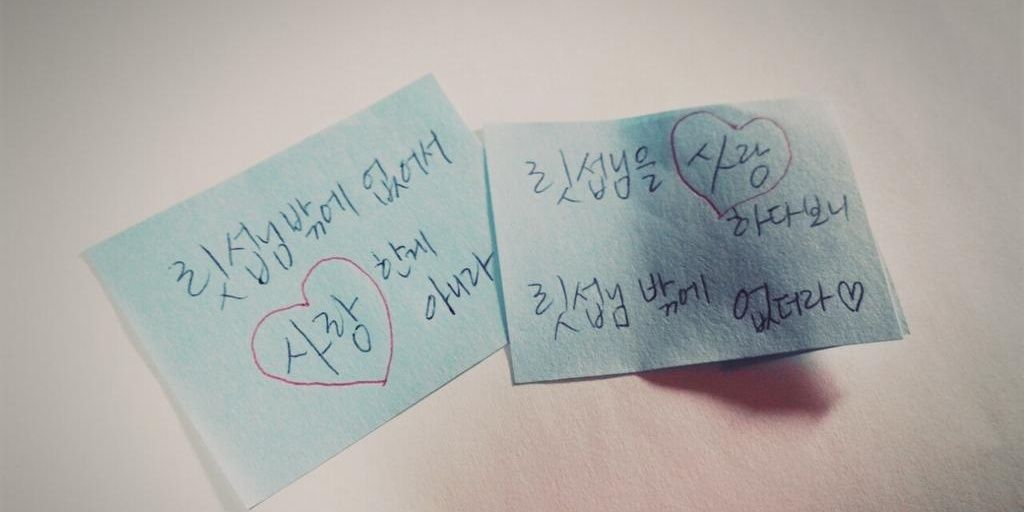 릿섭님밖에 없어서
사랑 한게
아니라
릿섭님을 사랑
하다보니
릿섭님 밖에 없더라♡